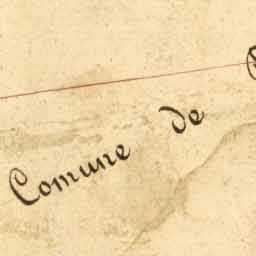 Comune de